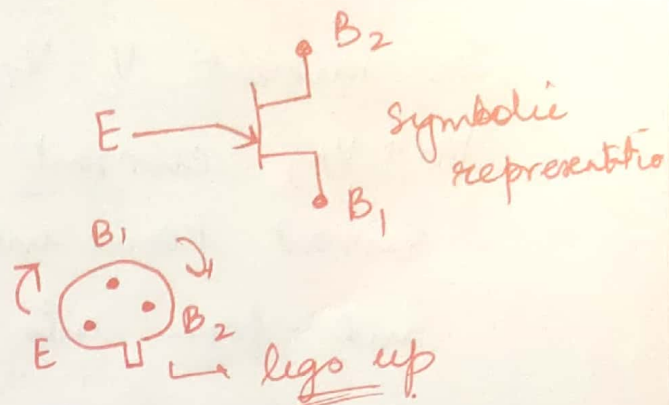 B2
E
symbolic
representatio
B1
B1
E
B2
legs up